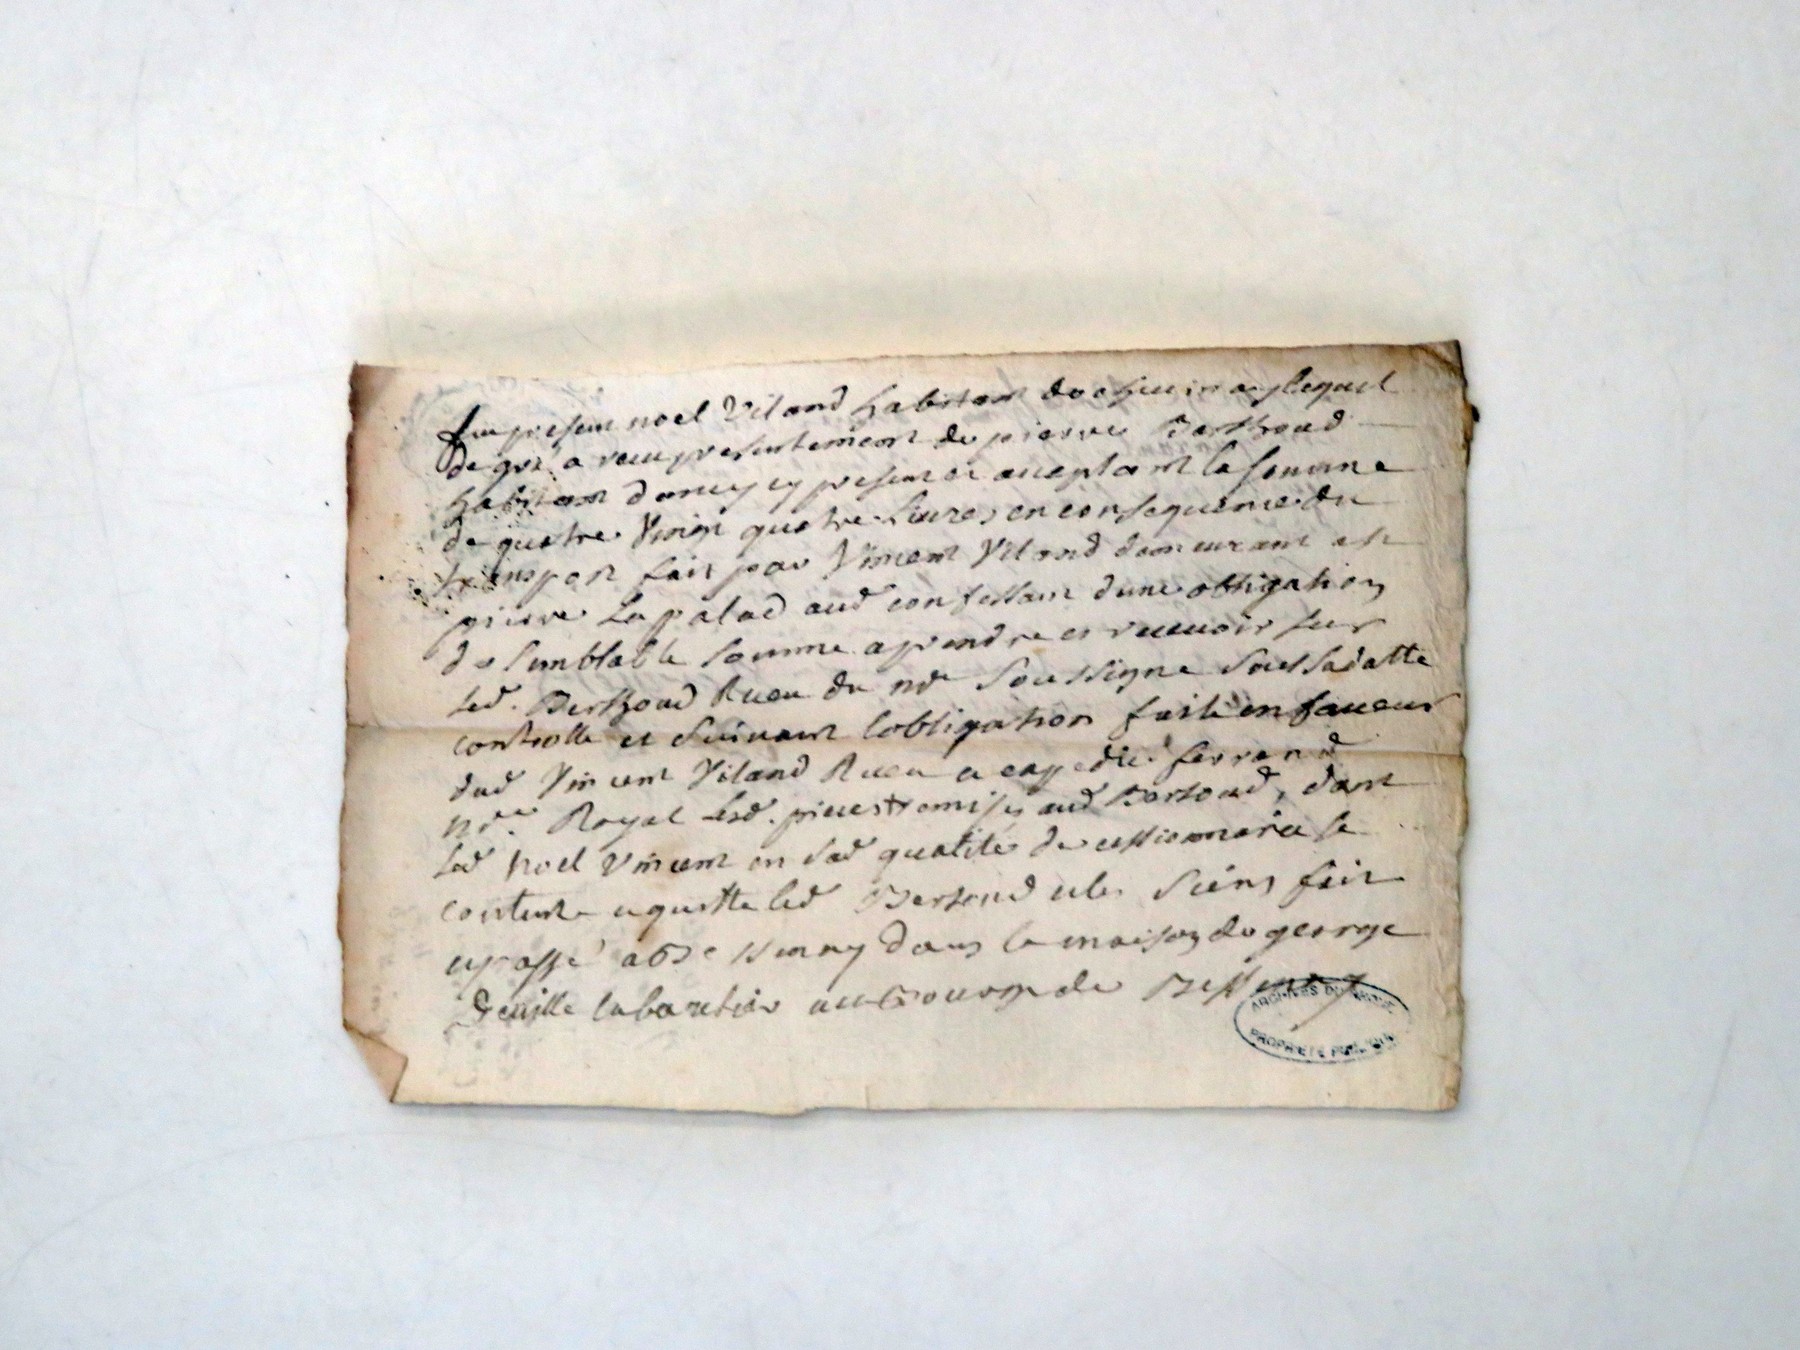 fut present noel Viland habitant de lequel
de gré a receu presentement de pierre Berthoud
habitant dancy cy present et acceptant la somme
de quatre Vingt quatre Livres en consequence du
transport fait par Vincent Viland demeurant
pierre La palad aud confessant dune obligation
de semblable somme a prendre et recevoir sur
led. Berthoud Receu du nore soussigne sous sa datte
controlle et suivant lobligation faite en faveur
dud Vincent Viland Receu et expedié ferrand
nre Royal Lesd. pieces remises aud Bertoud, dont
led noel Vincent en sad qualité de cessionnaire se
contente aquitte led Bertoud et les siens fait
et passé a dans la maison de george
Deville laboureur au de Bessenay
ARCHIVES DU RHÔNE
PROPRIÉTÉ PUBLIQUE